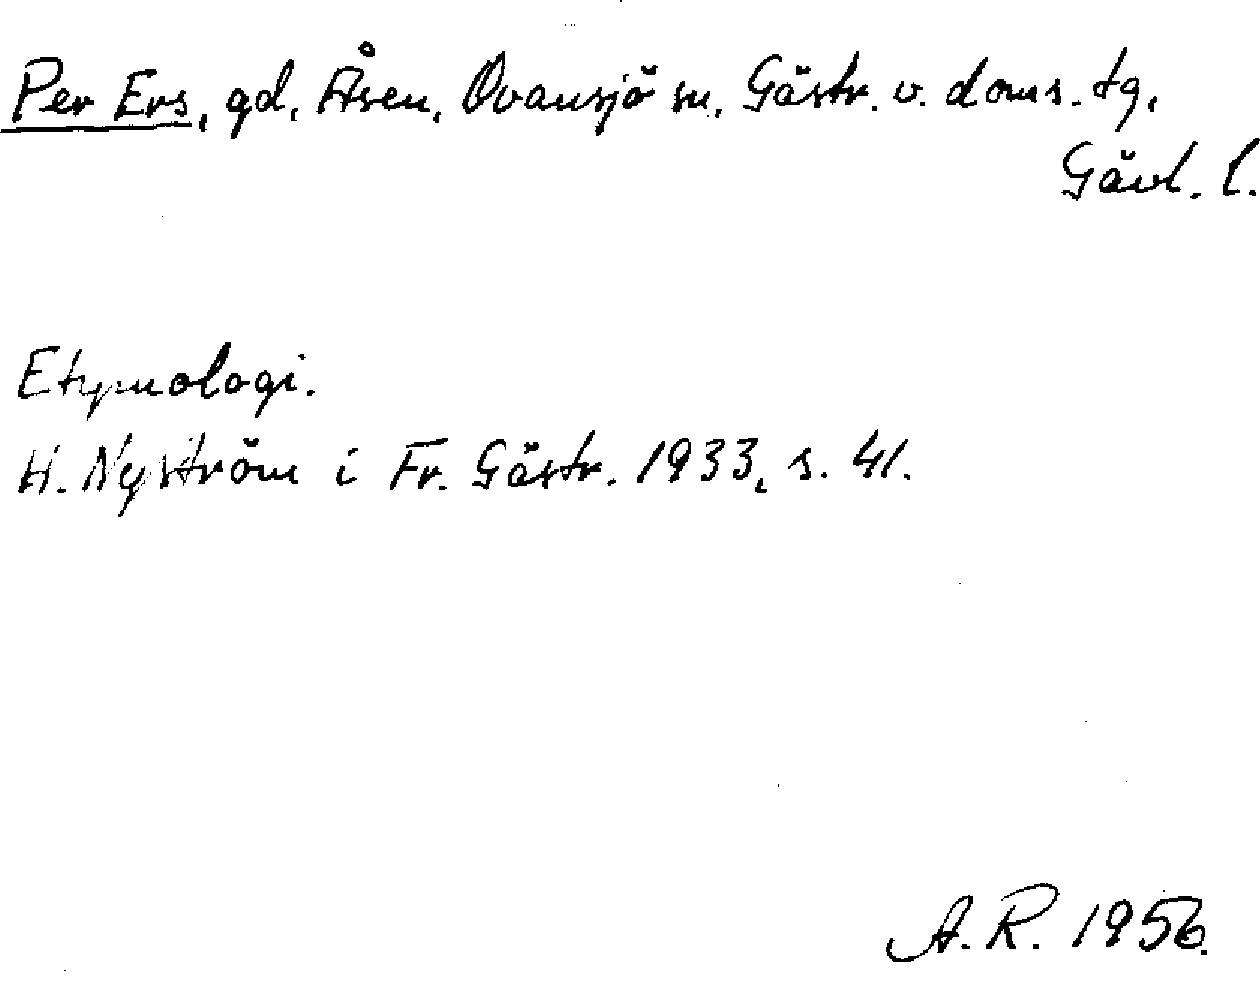 Per Ers, gd, Åsen, Ovansjö sn, Gästr. v. doms. tg,
Gävl. l.
Etymologi.
H. Nyström i Fr. Gästr. 1933, s. 41.
A.R. 1956.